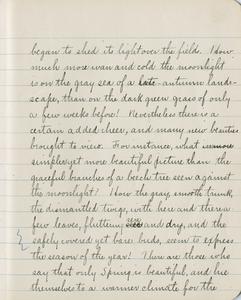 began to shed its light over the fields. How
much more wan and cold the moonlight
is on the gray sea of a late-autumn land-
scape, than on the dark green grass of only
a few weeks before! Nevertheless there is a
certain added cheer, and many new beauties
brought to view. For instance, what is more
simple yet more beautiful picture than the
graceful branches of a beech tree seen against
the moonlight! How the gray, smooth trunk,
the dismantled twigs, with here and there a
few leaves, fluttering and dry, and the
safely covered yet bare buds, seem to express
the season of the year! There are those who
say that only Spring is beautiful, and hie
themselves to a warmer climate for the